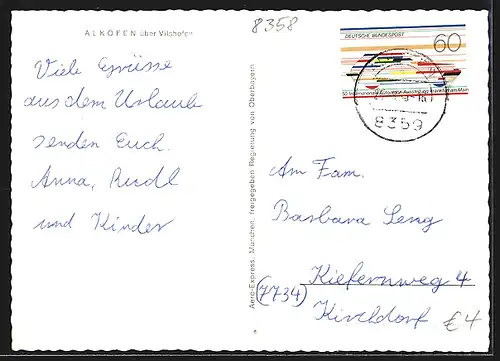 ALKOFEN über Vilshofen
8358
Viele Grüsse
aus dem Urlaub
senden Euch.
Anna, Rudl
und Kinder
Aero-Express, München, freigegeben Regierung von Oberbayern
DEUTSCHE BUNDESPOST
60
50 Internationale Automobil-Ausstellung Frankfurt am Main
8359
Am Fam.
Barbara Leng
Kiefernweg 4
(7734)
Kirchdorf
€4